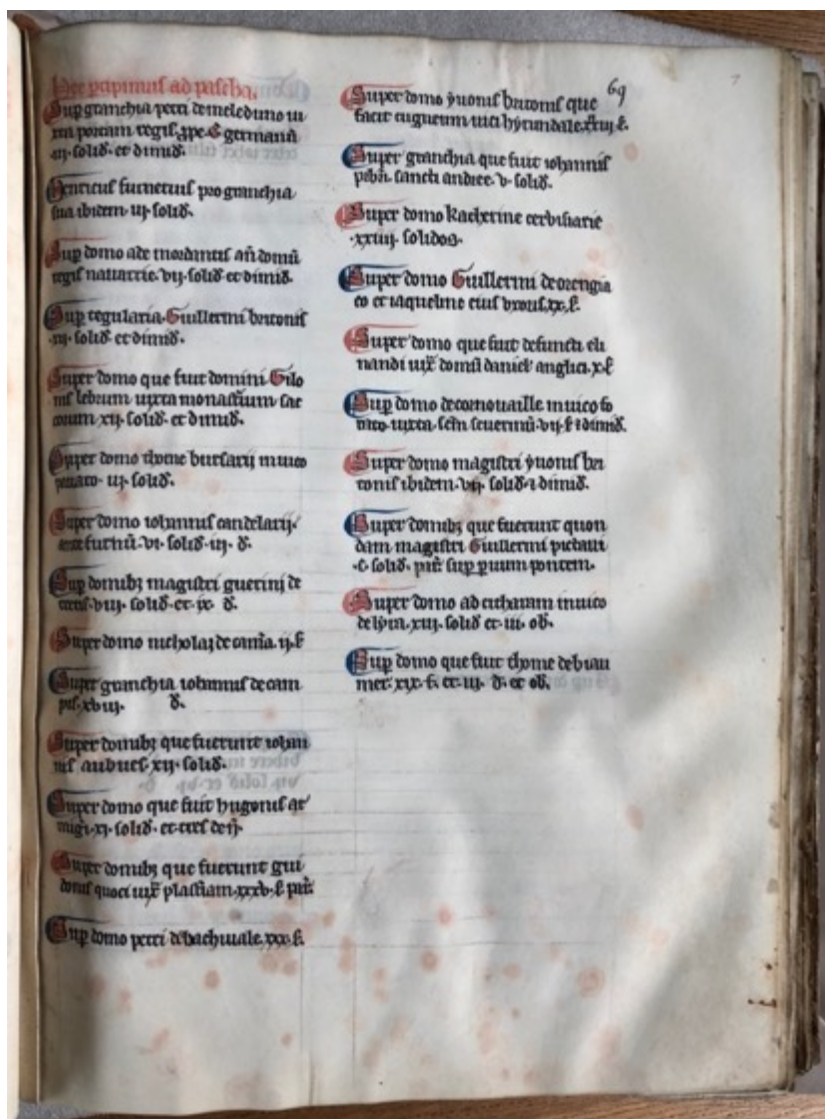 Hec percipimus ad pascha.
Sup granchia petri de meleduno iu
xta portam regis, ppe. S germanū
solid. et dimid.
Henricus furnerius pro granchia
sua ibidem. iij solid.
Sup domo ade mordantis añ domū
regis nauarrie. vij. solid et dimid.
Sup tegularia. Guillermi britonis
.iij. solid. et dimid.
Super domo que fuit domini Gilo
nis lebrum iuxta monasterium sac
corum xij. solid. et dimid.
Super domo thome bursarij in uico
iij. solid.
Super domo iohannis candelarij.
furnū. vi. solid. iij. d.
Sup domibz magistri guerini de
viij. solid. et ix d.
Super domo nicholai de cam̄a. ij. s
Super granchia iohannis de cam
pis. xviij. d.
Super domibz que fuerunt iohan
nis aubues. xij. solid.
Super domo que fuit hugonis ar
migi. xj. solid. et tres deñ.
Super domibz que fuerunt gui
donis quoci iux plastiam. xxxv. s pis
Sup domo petri de bachiuale. xxx. s.
69
Super domo yuonis britonis que
facit cugneum uici hyrundale. xxiij s.
Super granchia que fuit iohannis
pbri sancti andree. v. solid.
Super domo katherine ceruisiarie
.xxiiij. solidos.
Super domo Guillermi de orengia
co et iaqueline eius vxoris. xx. s.
Super domo que fuit defuncti eli
nandi iux domū daniel' anglici. x. s
Sup domo de cornouaille in uico fo
nato. iuxta. scm seuerinū. vij. s & dimid.
Super domo magistri yuonis bri
tonis ibidem. vij. solid. & dimid.
Super domibz que fuerunt quon
dam magistri Guillermi pictaui
.c. solid. pis sup puum pontem.
Super domo ad citharam in uico
de lyra. xiij. solid et. iii. ob.
Sup domo que fuit thome de biau
mer. xix. s. et. iij. d. et ob.